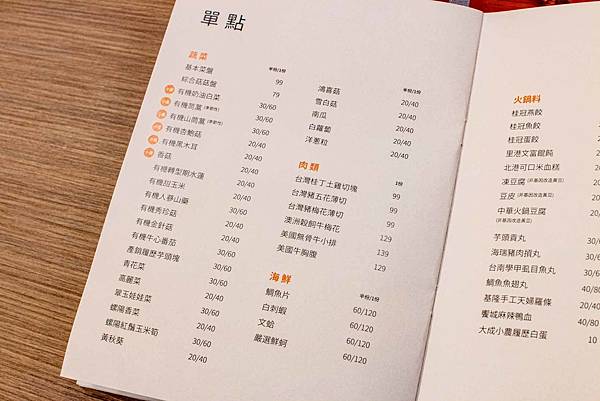 單點
蔬菜
半份/1份
基本菜盤 99
綜合菇菇盤 79
有機奶油白菜 30/60
有機茼蒿 (季節性) 30/60
有機山茼蒿 (季節性) 30/60
有機杏鮑菇 30/60
有機黑木耳 20/40
香菇 30/60
有機轉型期水蓮
有機甜玉米
有機人蔘山藥
有機秀珍菇
有機金針菇
有機牛心番茄
產銷履歷芋頭塊
青花菜
高麗菜
翠玉娃娃菜
螺陽香菜
螺陽紅鬚玉米筍
黃秋葵 20/40
半份/1份
鴻喜菇 20/40
雪白菇 20/40
南瓜 20/40
白蘿蔔 20/40
洋蔥粒 20/40
肉類
1份
台灣桂丁土雞切塊 99
台灣豬五花薄切 99
台灣豬梅花薄切 99
澳洲穀飼牛梅花 129
美國無骨牛小排 139
美國牛胸腹 129
海鮮
半份/1份
鯛魚片 60/120
白刺蝦 60/120
文蛤 60/120
嚴選鮮蚵 60/120
火鍋料
桂冠燕餃
桂冠魚餃
桂冠蛋餃
里港文富餛飩
北港可口米血糕
凍豆腐 (非基因改造黃豆)
豆皮 (非基因改造黃豆)
中華火鍋豆腐
(非基因改造黃豆)
芋頭貢丸 30/
海瑞豬肉摃丸 30/
台南學甲虱目魚丸 30/
鯛魚魚翅丸 30/
基隆手工天婦羅條 20/4
饗城麻辣鴨血 40/80
大成小農履歷白蛋 10